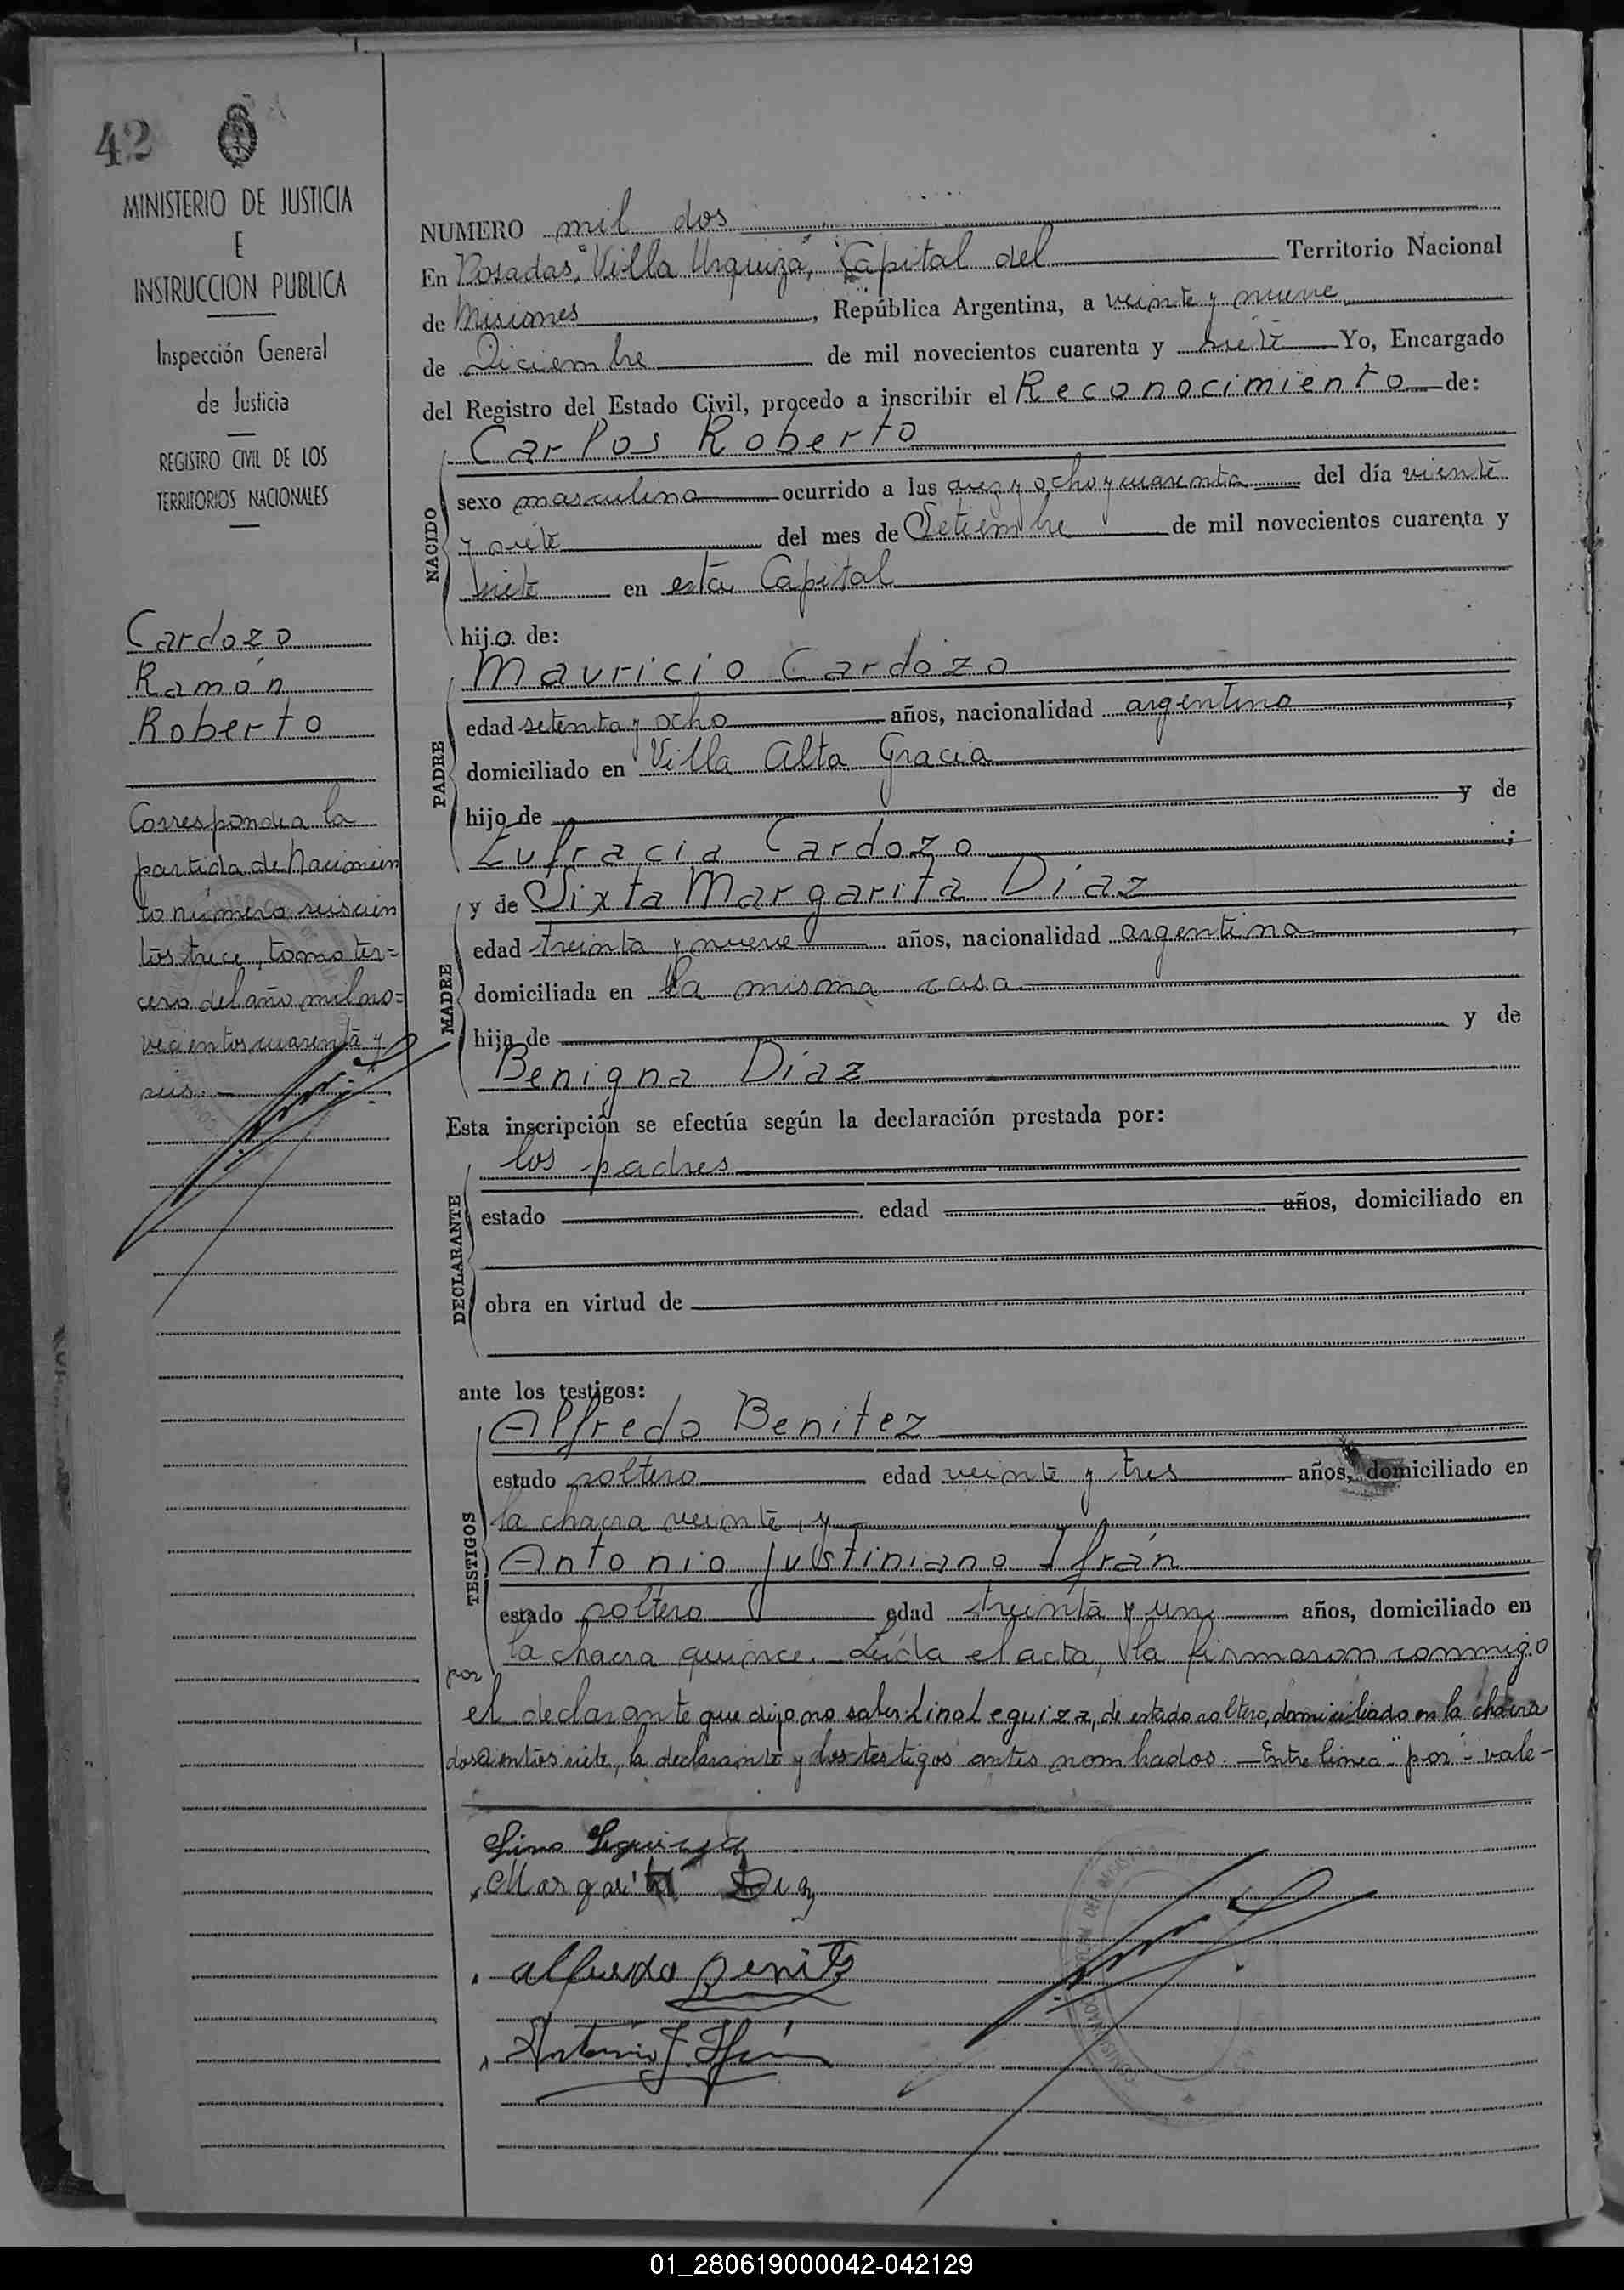 42
MINISTERIO DE JUSTICIA
E
INSTRUCCION PUBLICA
Inspección General
de Justicia
REGISTRO CIVIL DE LOS
TERRITORIOS NACIONALES
Cardozo
Ramón
Roberto
Corresponde a la
partida de Nacimien
to número seiscien
tos trece, tomo ter=
cero del año mil no=
vecientos cuarenta y
seis.
NUMERO mil dos
En Posadas, "Villa Urquiza", Capital del Territorio Nacional
de Misiones, República Argentina, a veinte y nueve
de Diciembre de mil novecientos cuarenta y siete Yo, Encargado
del Registro del Estado Civil, procedo a inscribir el Reconocimiento de:
NACIDO
Carlos Roberto
sexo masculino ocurrido a las diez y ocho y cuarenta del día viente
y siete del mes de Setiembre de mil novecientos cuarenta y
siete en esta Capital
hijo de:
PADRE
Mauricio Cardozo
edad setenta y ocho años, nacionalidad argentino,
domiciliado en Villa Alta Gracia
hijo de y de
Eufracia Cardozo;
MADRE
y de Sixta Margarita Díaz
edad treinta y nueve años, nacionalidad argentina,
domiciliada en la misma casa
hija de y de
Benigna Díaz
Esta inscripción se efectúa según la declaración prestada por:
DECLARANTE
los padres
estado edad años, domiciliado en
obra en virtud de
ante los testigos:
TESTIGOS
Alfredo Benitez
estado soltero edad veinte y tres años, domiciliado en
la chacra veinte, y
Antonio Justiniano Ifrán
estado soltero edad treinta y un años, domiciliado en
la chacra quince. Leída el acta, la firmaron conmigo
por
el declarante que dijo no saber: Lino Leguiza, de estado soltero, domiciliado en la chacra
doscientos siete, la declarante y los testigos antes nombrados. — Entre linea "por" - vale -
Lino Leguiza
Margarita Diaz
Alfredo Benitez
Antonio J. Ifrán
01_280619000042-042129